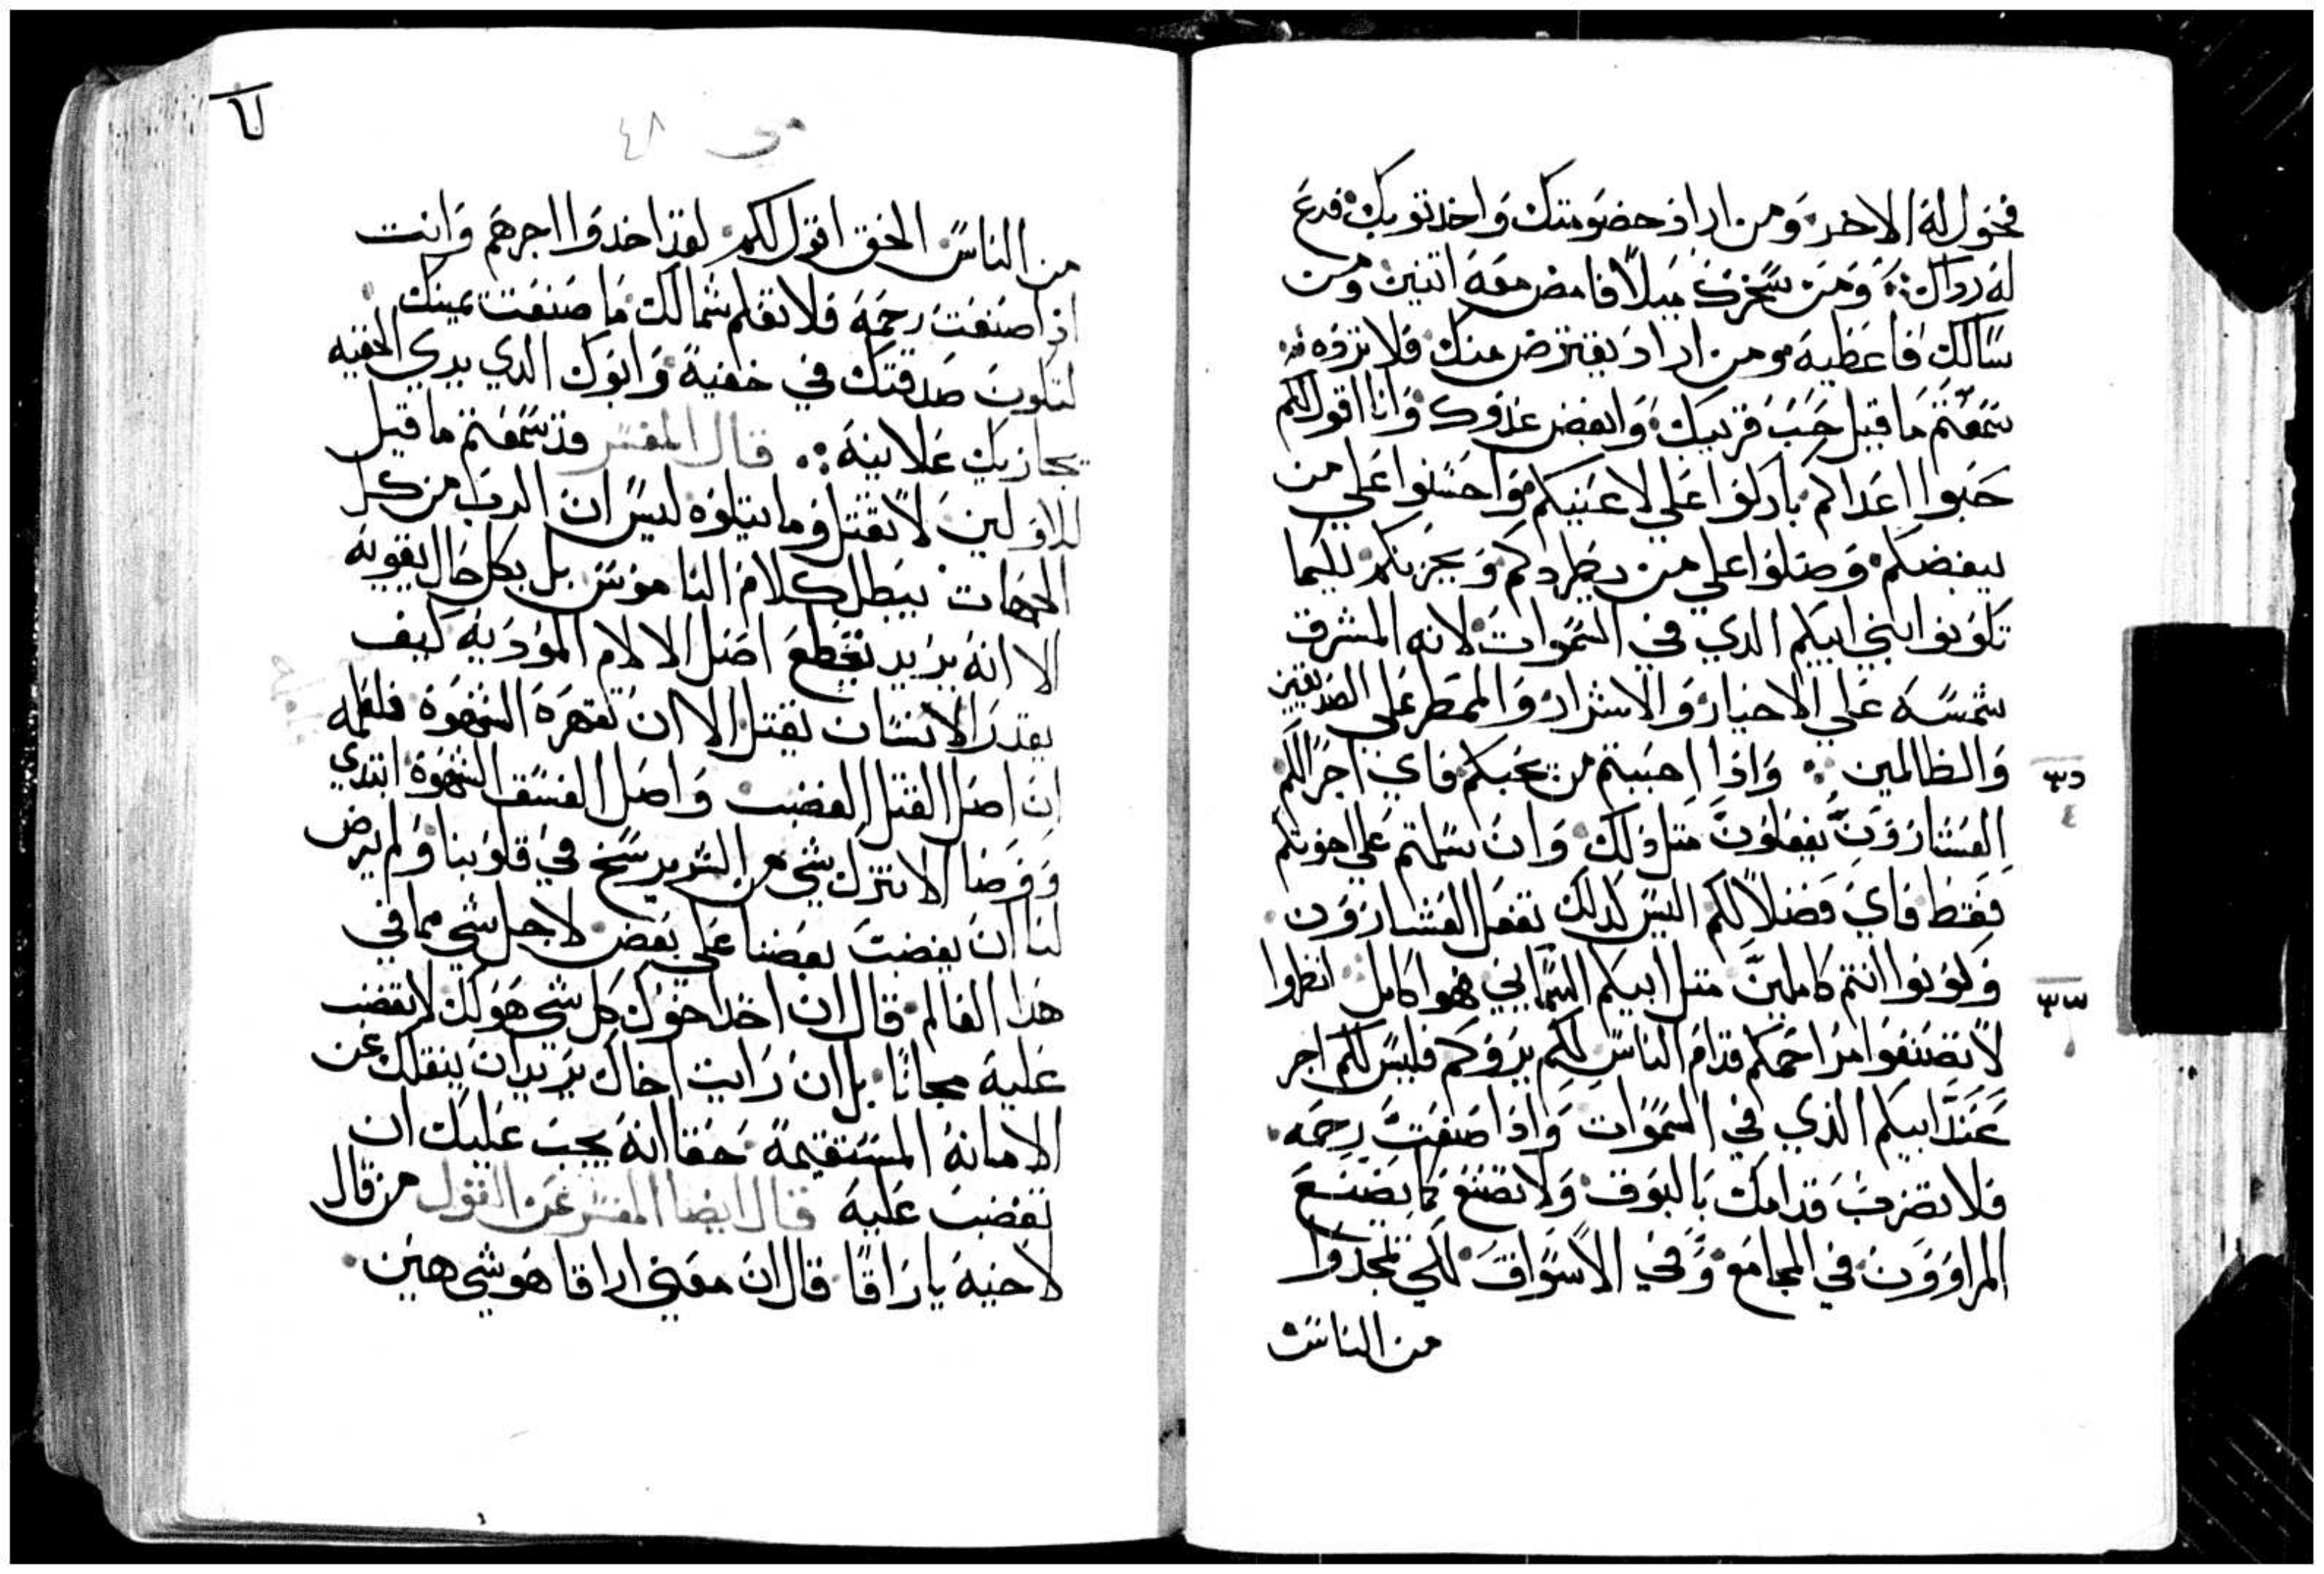 فحول له الاخر ومن اراد خصومتك واخد توبك فدع
له رداك ومن سخرك ميلاً فامض معه اتنين ومن
سالك فاعطيه ومن اراد يقترض منك فلا ترده
سمعتم ما قيل حب قريبك وابغض عدوك وانا اقول لكم
حبوا اعداكم باركوا علي لاعنيكم واحسنوا علي من
يبغضكم وصلوا علي من يطردكم ويحزنكم لكيما
تكونوا بني ابيكم الدي في السموات لانه المشرق
شمسه علي الاخيار والاشرار والممطر علي الصديقين
والظالمين واذا احببتم من يحبكم فاي اجرًا لكم
العشارون يفعلون متل ذلك وان سلمتم علي اخوتكم
فقط فاي فضلاً لكم اليس كدلك تفعل العشارون
وكونوا انتم كاملين متل ابيكم السمايي فهوا كامل انظروا
لا تصنعوا مراحمكم قدام الناس لكم يروكم فليس لكم اجر
عند ابيكم الذي في السموات واذا صنعت رحمه
فلا تضرب قدامك بالبوق ولا تصنع كما يصنع
المراوون في المجامع وفي الاسواق لكي يمجدوا
من الناس
دس
٤
سس
٦
مى ٤٨
من الناس الحق اقول لكم لقد اخدوا اجرهم وانت
اذا صنعت رحمه فلا تعلم شمالك ما صنعت يمينك
لتكون صدقتك في خفية وابوك الدي يري الخفيه
يجازيك علانيه قال المفسر قد سمعتم ما قيل
للاولين لا تقتل وما يتلوه ليس ان الرب من كل
الجهات يبطل كلام الناموس بل بكل حال يقويه
الا انه يريد يقطع اصل الالام المؤديه كيف
يقدر الانسان يقتل الا ان تقهره الشهوة فلعلمه
ان اصل القتل الغضب واصل الفسق الشهوة ابتدي
ووصا الا نترك شي من الشر يرسخ في قلوبنا ولم يرض
لنا ان يغضب بعضنا علي بعض لاجل شي مما في
هدا العالم قال ان اخد اخوك كل شي هو لك لا تغضب
عليه مجانًا بل ان رايت اخاك يريد ان ينقلك عن
الامانة المستقيمة حقا انه يجب عليك ان
تغضب عليه قال ايضا المفسر عن القول من قال
لاخيه يا راقا قال ان معني اراقا هو شي هين